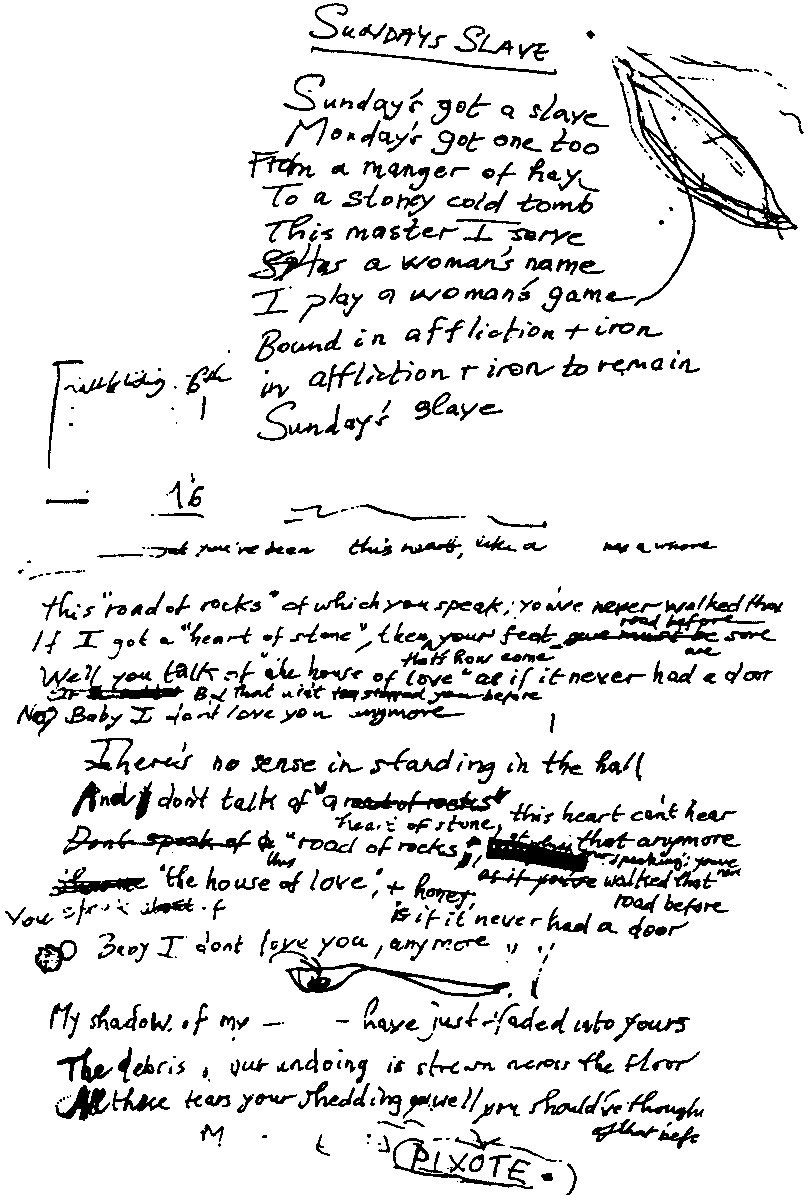 SUNDAYS SLAVE
Sunday's got a slave
Monday's got one too
From a manger of hay
To a stoney cold tomb
This master I serve
Has a woman's name
I play a woman's game
Bound in affliction + iron
in affliction + iron to remain
Sunday's slave
6th
16
you've been this heart, like a
this "road of rocks" of which you speak; you've never walked that
road before
If I got a "heart of stone", then your feet must be sore
that's how come are
Well you talk of "the house of love" as if it never had a door
But that ain't before
No) Baby I don't love you anymore
There's no sense in standing in the hall
And I don't talk of "a road of rocks"
heart of stone, this heart can't hear
Don't speak of a "road of rocks" that anymore
this speaking; you've
"the house of love", + honey, as if you've walked that
road before
You speak of is if it never had a door
Baby I don't love you, anymore
My shadow of my - - have just faded into yours
The debris of our undoing is strewn across the floor
All these tears your shedding well you should've thought
of that befo
M
PIXOTE